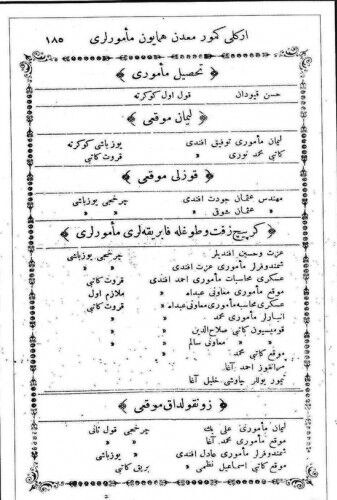 ارکلی کمور معدن همایون مأمورلری ١٨٥
﴿ تحصیل مأموری ﴾
حسن قپودان قول اول کوکرته
﴿ لیمان موقعی ﴾
لیمان مأموری توفیق افندی یوزباشی کوکرته
کاتبی محمد نوری » قروت کاتبی
﴿ قوزلی موقعی ﴾
مهندس عثمان جودت افندی چرخجی یوزباشی
» عثمان شوقی » » »
﴿ کرپیچ زفت و طوغله فابریقه‌لری مأمورلری ﴾
عزت وحسین افندیلر چرخجی یوزباشی
شمندوفرلر مأموری عزت افندی » »
عسکری محاسبات مأموری احمد افندی قروت کاتبی
موقع مأموری معاونی عبداﷲ » ملازم اول
عسکری محاسبه مأموری معاونی عبداﷲ » قروت کاتبی
انبارلر مأموری محمد »
قومیسیون کاتبی صلاح‌الدین »
» معاونی سالم »
موقع کاتبی محمد »
احمد آغا
تیمور یوللر چاوشی خلیل آغا
﴿ زونغولداق موقعی ﴾
لیمان مأموری علی بك چرخجی قول ثانی
موقع مأموری محمد آغا » »
شمندوفرلر مأموری عادل افندی » یوزباشی
موقع کاتبی اسماعیل نظمی » بریق کاتبی